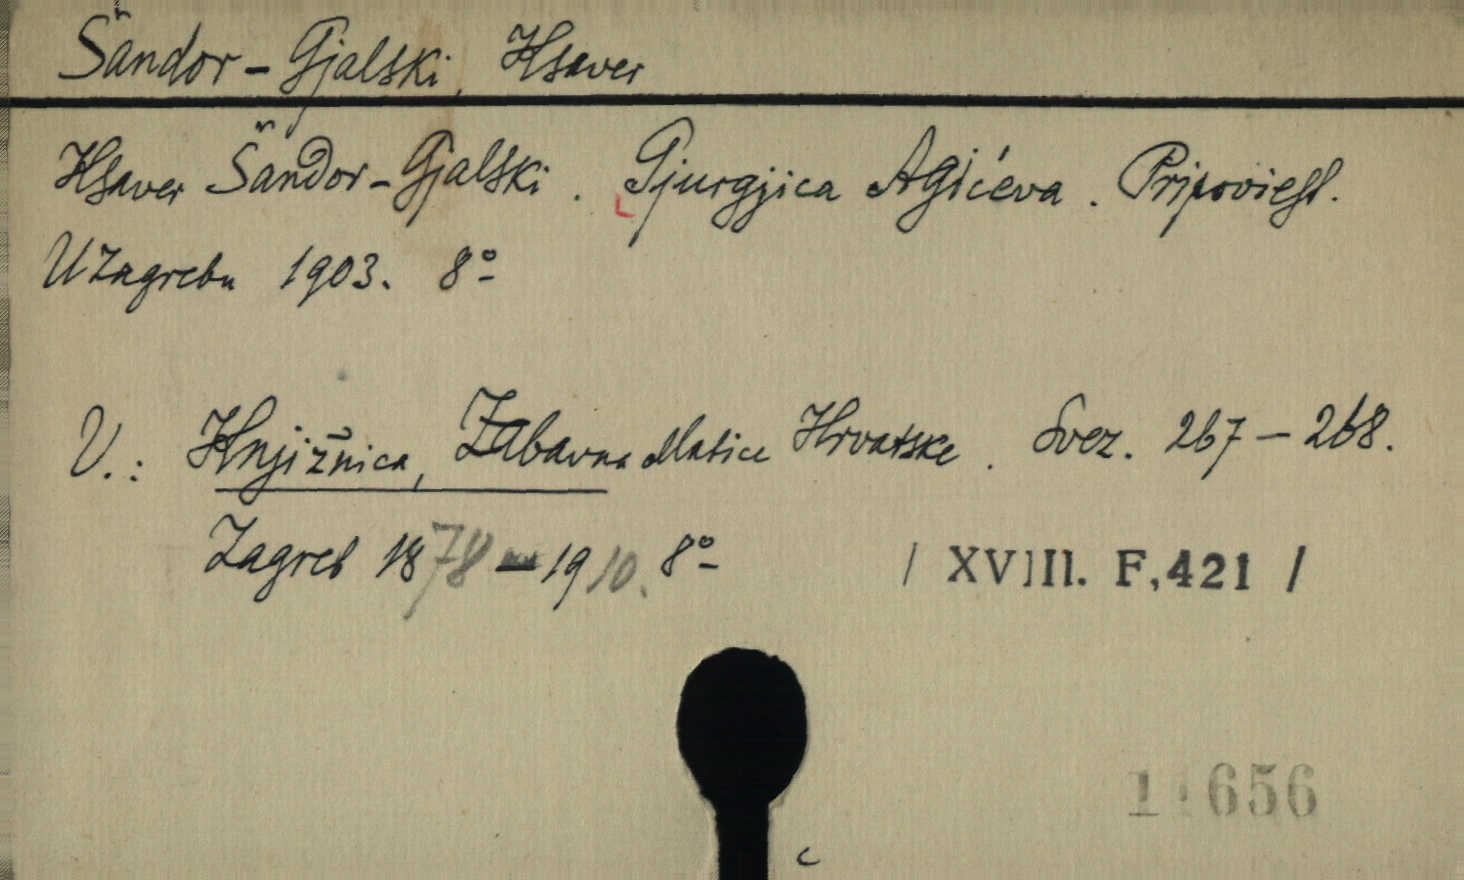 Šandor-Gjalski, Ksaver
Ksaver Šandor-Gjalski. Gjurgjica Agićeva. Pripoviest.
U Zagrebu 1903. 8º
V.: Knjižnica, Zabavna Matice Hrvatske. Svez. 267-268.
Zagreb 1878-1910. 8º / XVIII. F,421 /
656
c